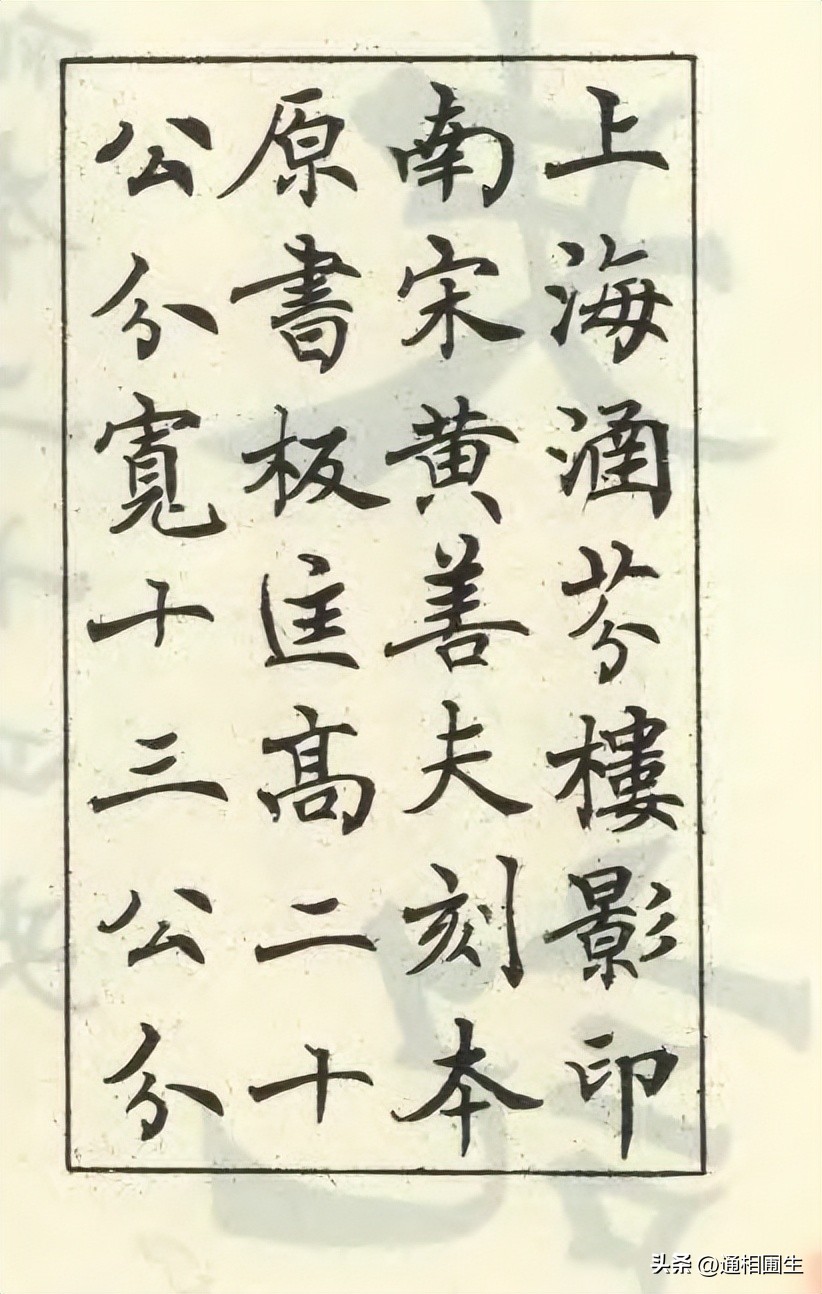 上海涵芬樓影印
南宋黄善夫刻本
原書板匡高二十
公分寬十三公分
头条 @通相圃生